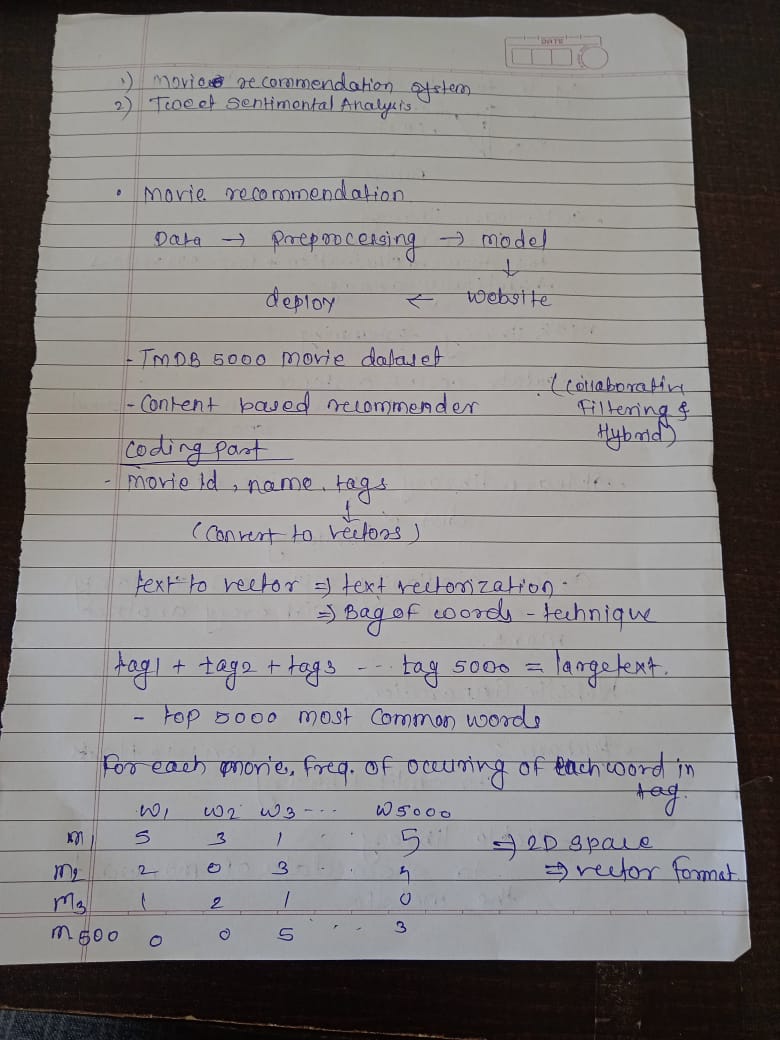 DATE
1) Movie recommendation system
2) Tweet Sentimental Analysis.
• Movie recommendation
Data → Preprocessing → model
↓
deploy ← website
- TMDB 5000 movie dataset
(Collaborative
- Content based recommender Filtering &
Hybrid)
Coding part
- movie id, name, tags
↓
(Convert to vectors)
text to vector ⇒ text vectorization.
⇒ Bag of words - technique
tag1 + tag2 + tag3 --- tag 5000 = large text.
- top 5000 most common words
For each movie, freq. of occuring of each word in
tag.
W1 W2 W3 --- W5000
M1 5 3 1 .. 5 ⇒ 2D space
M2 2 0 3 .. 4 ⇒ vector format.
M3 1 2 1 0
M500 0 0 5 .. 3